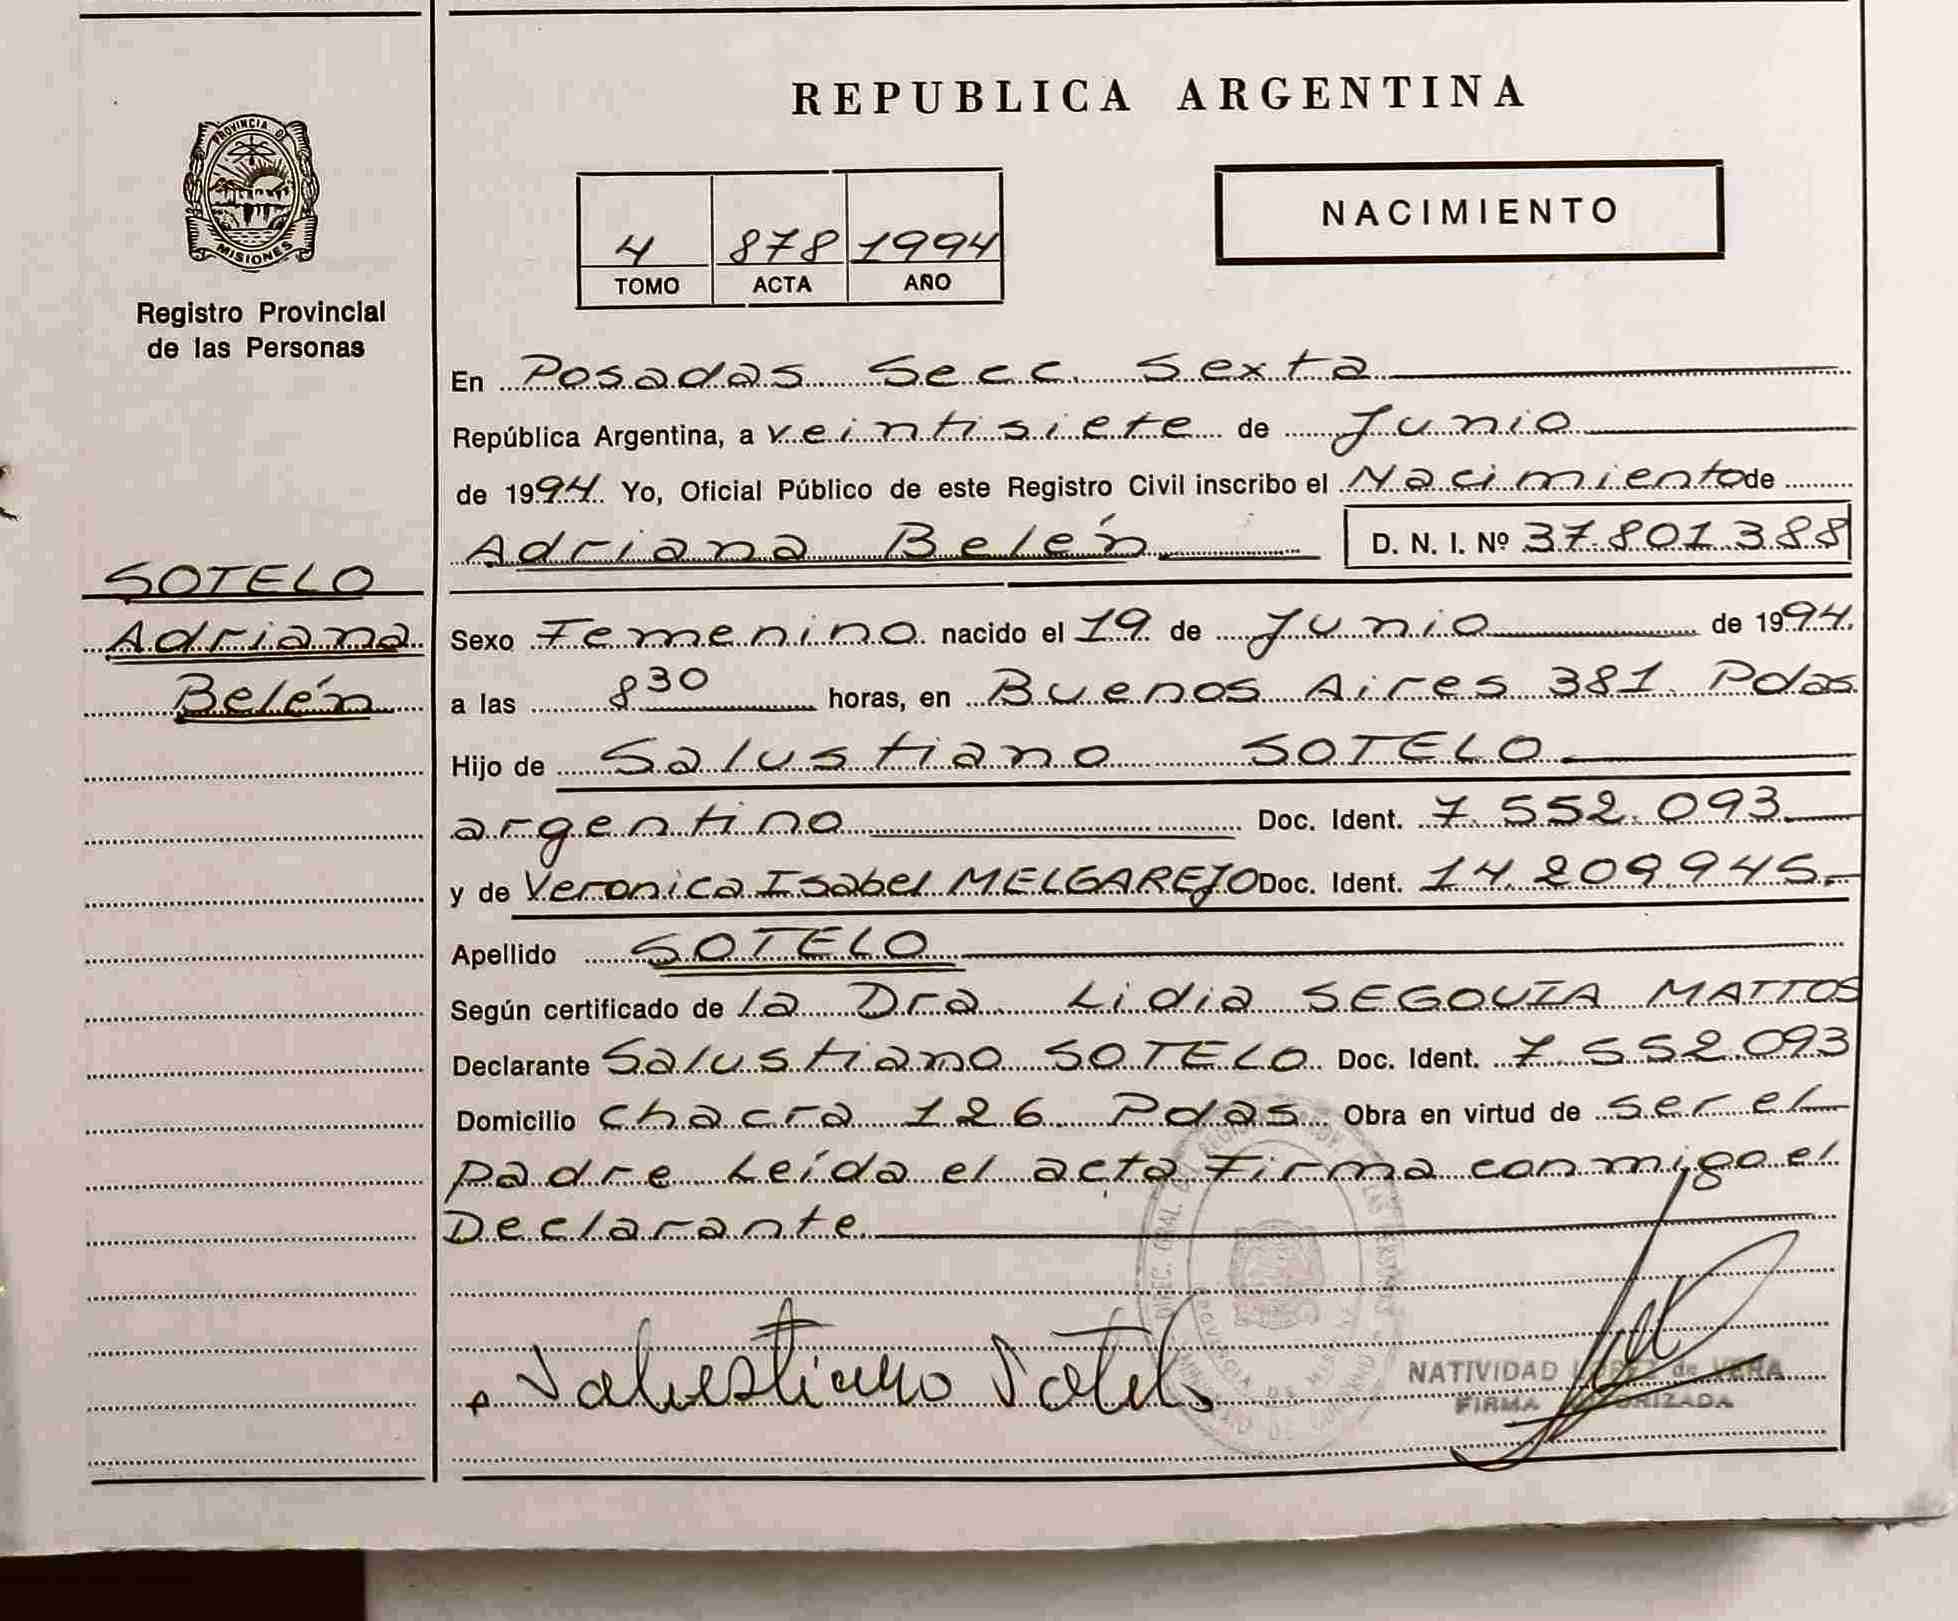 PROVINCIA DE
MISIONES
Registro Provincial
de las Personas
SOTELO
Adriana
Belén
REPUBLICA ARGENTINA
4 878 1994
TOMO ACTA AÑO
NACIMIENTO
En Posadas Secc. Sexta
República Argentina, a veintisiete de Junio
de 1994. Yo, Oficial Público de este Registro Civil inscribo el Nacimiento de
Adriana Belén D. N. I. Nº 37.801.388
Sexo Femenino nacido el 19 de Junio de 1994.
a las 8 30 horas, en Buenos Aires 381. Pdas.
Hijo de Salustiano SOTELO
argentino Doc. Ident. 7.552.093
y de Veronica Isabel MELGAREJO Doc. Ident. 14.209.945
Apellido SOTELO
Según certificado de la Dra. Lidia SEGOVIA MATTOS
Declarante Salustiano SOTELO. Doc. Ident. 7.552.093
Domicilio Chacra 126 Pdas. Obra en virtud de ser el
padre Leída el acta Firma conmigo el
Declarante.
Salustiano Sotelo
NATIVIDAD LOPEZ de VERA
FIRMA AUTORIZADA